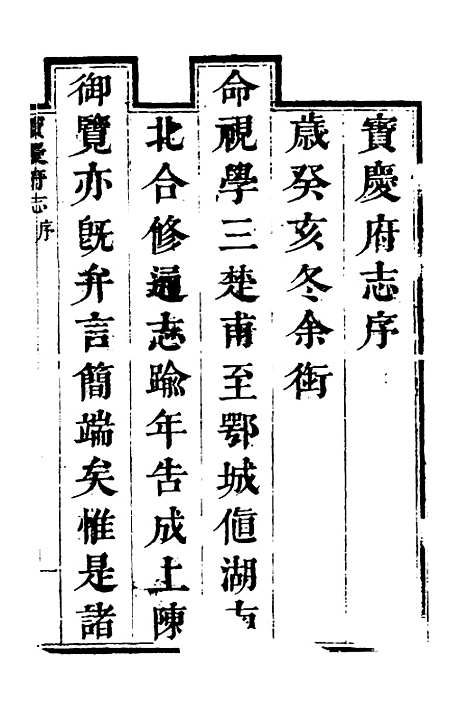 寶慶府志序
歲癸亥冬余銜
命視學三楚甫至鄂城値湖南
北合修通志踰年告成上陳
御覽亦旣弁言簡端矣惟是諸
寶慶府志序
一